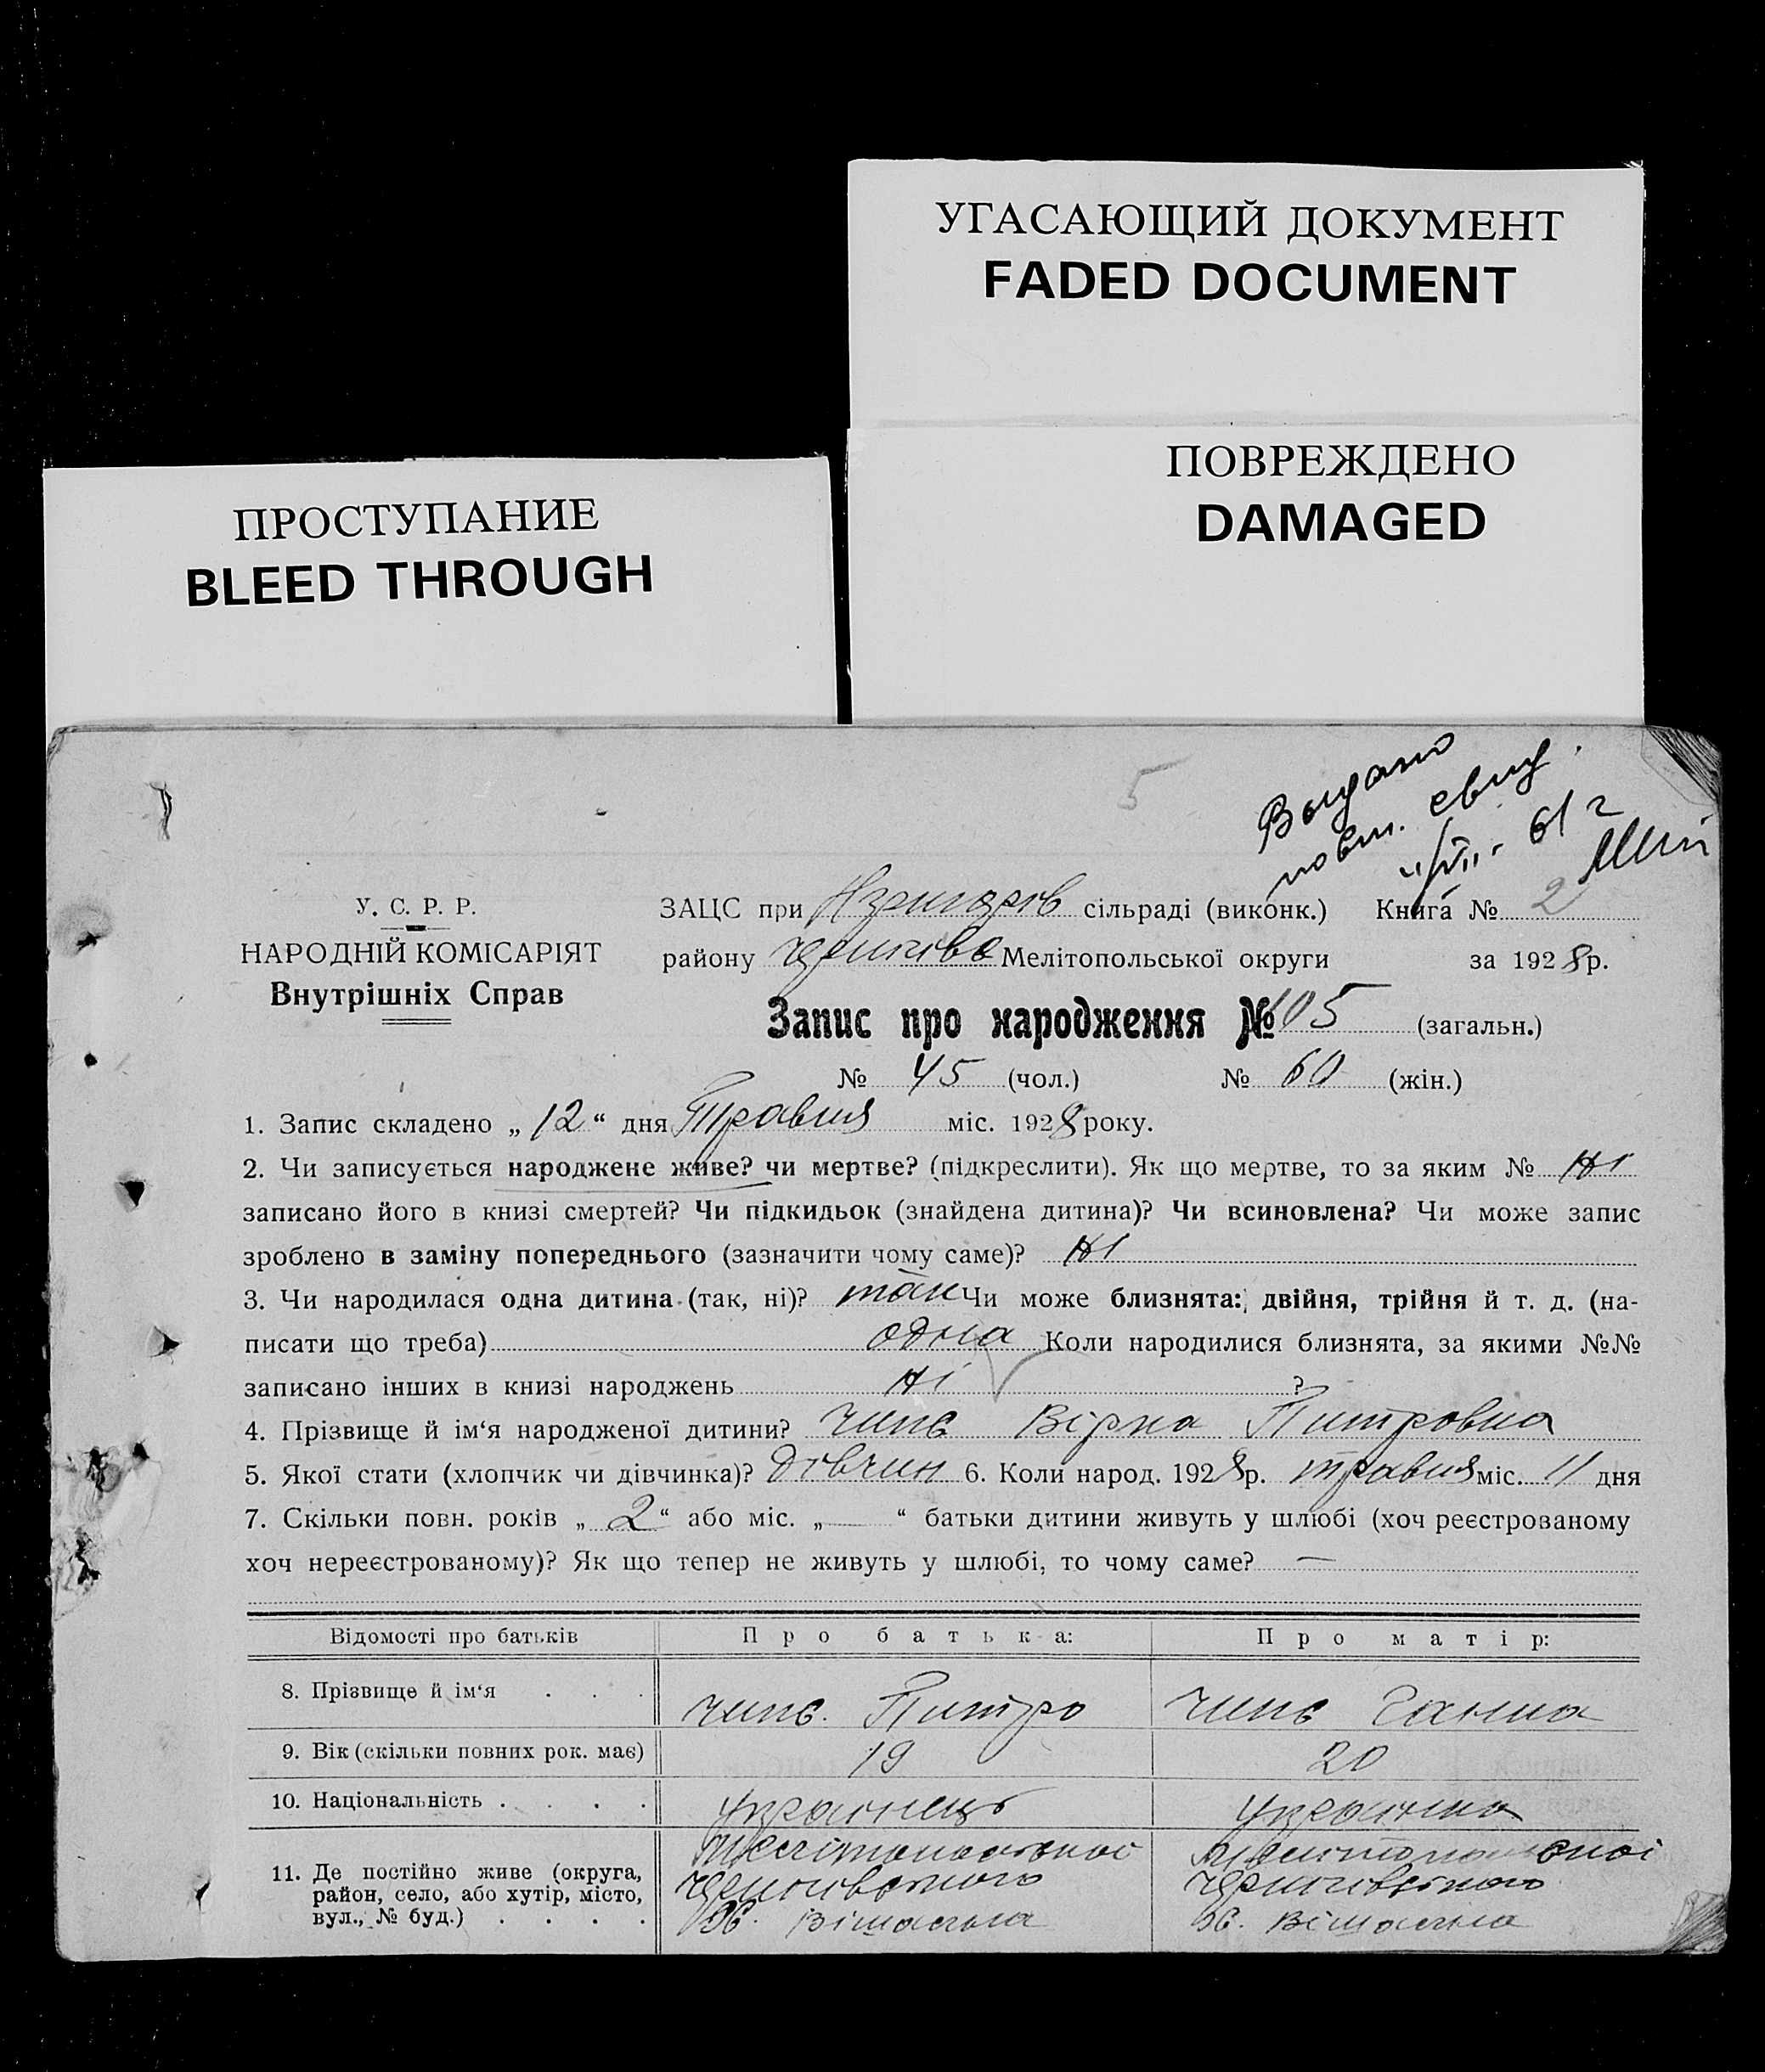 УГАСАЮЩИЙ ДОКУМЕНТ
FADED DOCUMENT
ПОВРЕЖДЕНО
DAMAGED
ПРОСТУПАНИЕ
BLEED THROUGH
5
Выдано
повт. свид.
61 г
У. С. Р. Р.
НАРОДНІЙ КОМІСАРІЯТ
Внутрішніх Справ
ЗАЦС при сільраді (виконк.) Книга № 2
району Мелітопольської округи за 1928 р.
Запис про народження № 105 (загальн.)
№ 45 (чол.) № 60 (жін.)
1. Запис складено „ 12 “ дня Травня міс. 1928 року.
2. Чи записується народжене живе? чи мертве? (підкреслити). Як що мертве, то за яким № Ні
записано його в книзі смертей? Чи підкидьок (знайдена дитина)? Чи всиновлена? Чи може запис
зроблено в заміну попереднього (зазначити чому саме)? Ні
3. Чи народилася одна дитина (так, ні)? так Чи може близнята: двійня, трійня й т. д. (на-
писати що треба) одна Коли народилися близнята, за якими №№
записано інших в книзі народжень Ні ?
4. Прізвище й ім‘я народженої дитини? Чипе Вірка Питровна
5. Якої стати (хлопчик чи дівчинка)? Дівчин 6. Коли народ. 1928 р. травня міс. 11 дня
7. Скільки повн. років „ 2 “ або міс. „ — “ батьки дитини живуть у шлюбі (хоч реєстрованому
хоч нереєстрованому)? Як що тепер не живуть у шлюбі, то чому саме? —
Відомості про батьків Про батька: Про матір:
8. Прізвище й ім‘я . . . Чипе. Питро Чипе Ганна
9. Вік (скільки повних рок. має) 19 20
10. Національність . . . . Українець Українка
11. Де постійно живе (округа, район, село, або хутір, місто, вул., № буд.) . . . .